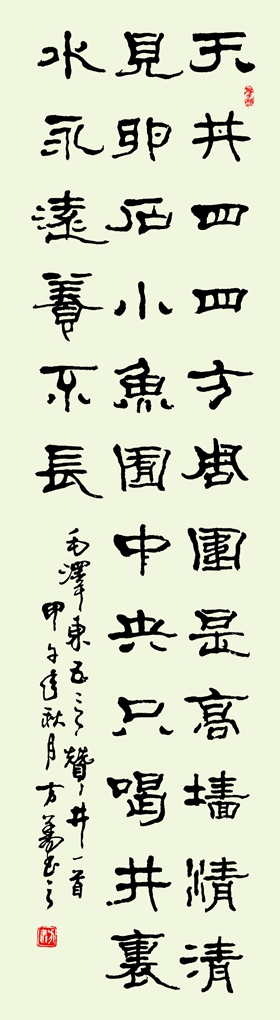 天井四四方周圍是高墻清清
見卵石小魚囿中央只喝井裏
水永遠養不長
毛澤東五言贊井一首
甲午年秋月方